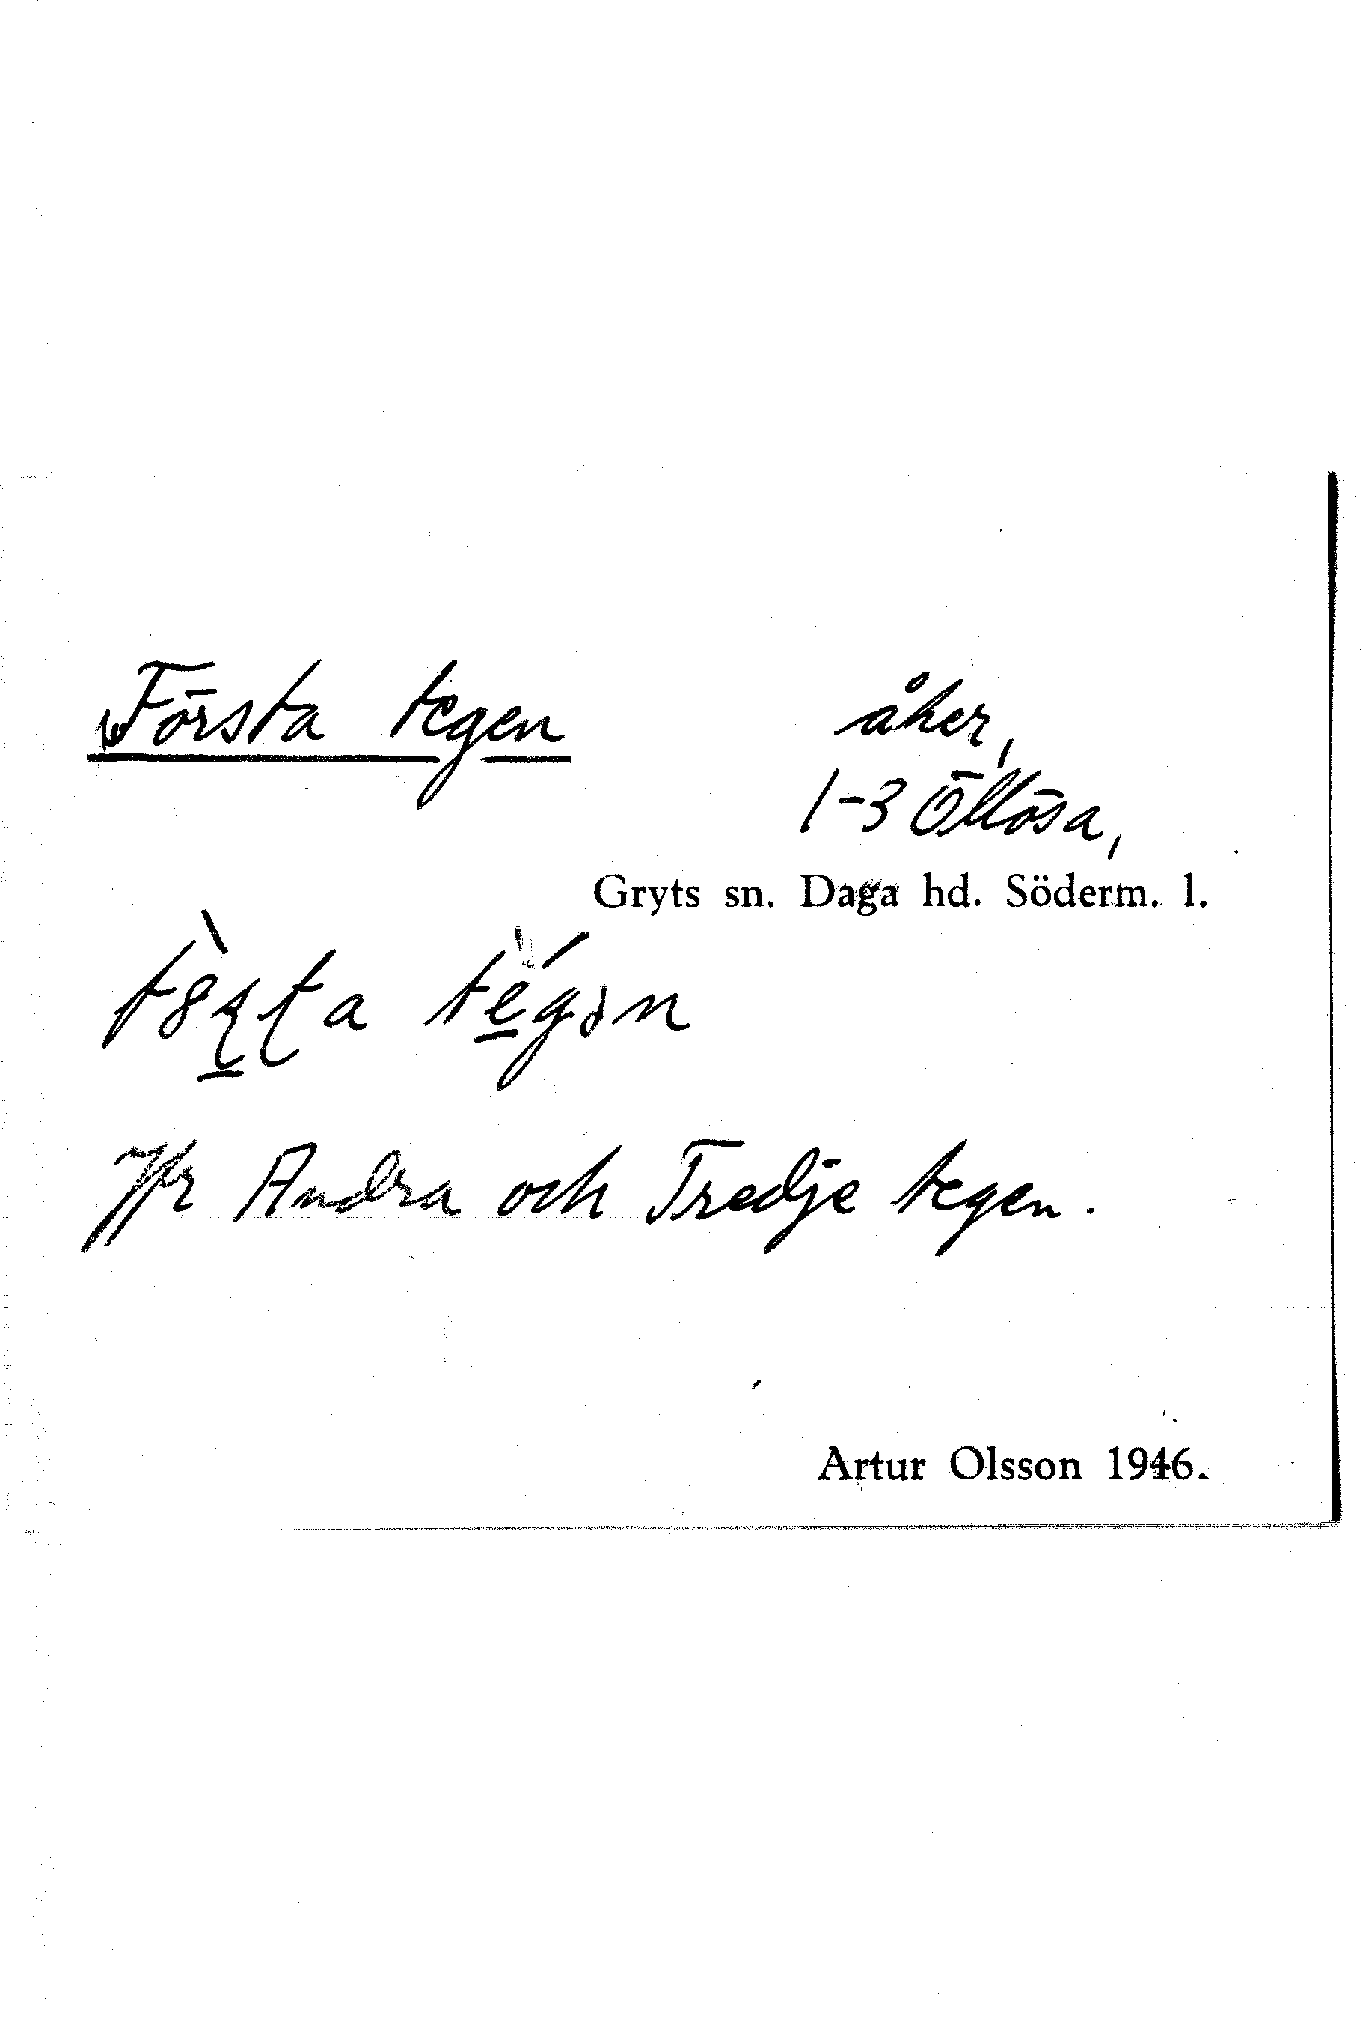 Första tegen
åker,
1-3 Öllösa,
Gryts sn. Daga hd. Söderm. l.
Jfr Andra och Tredje tegen.
Artur Olsson 1946.